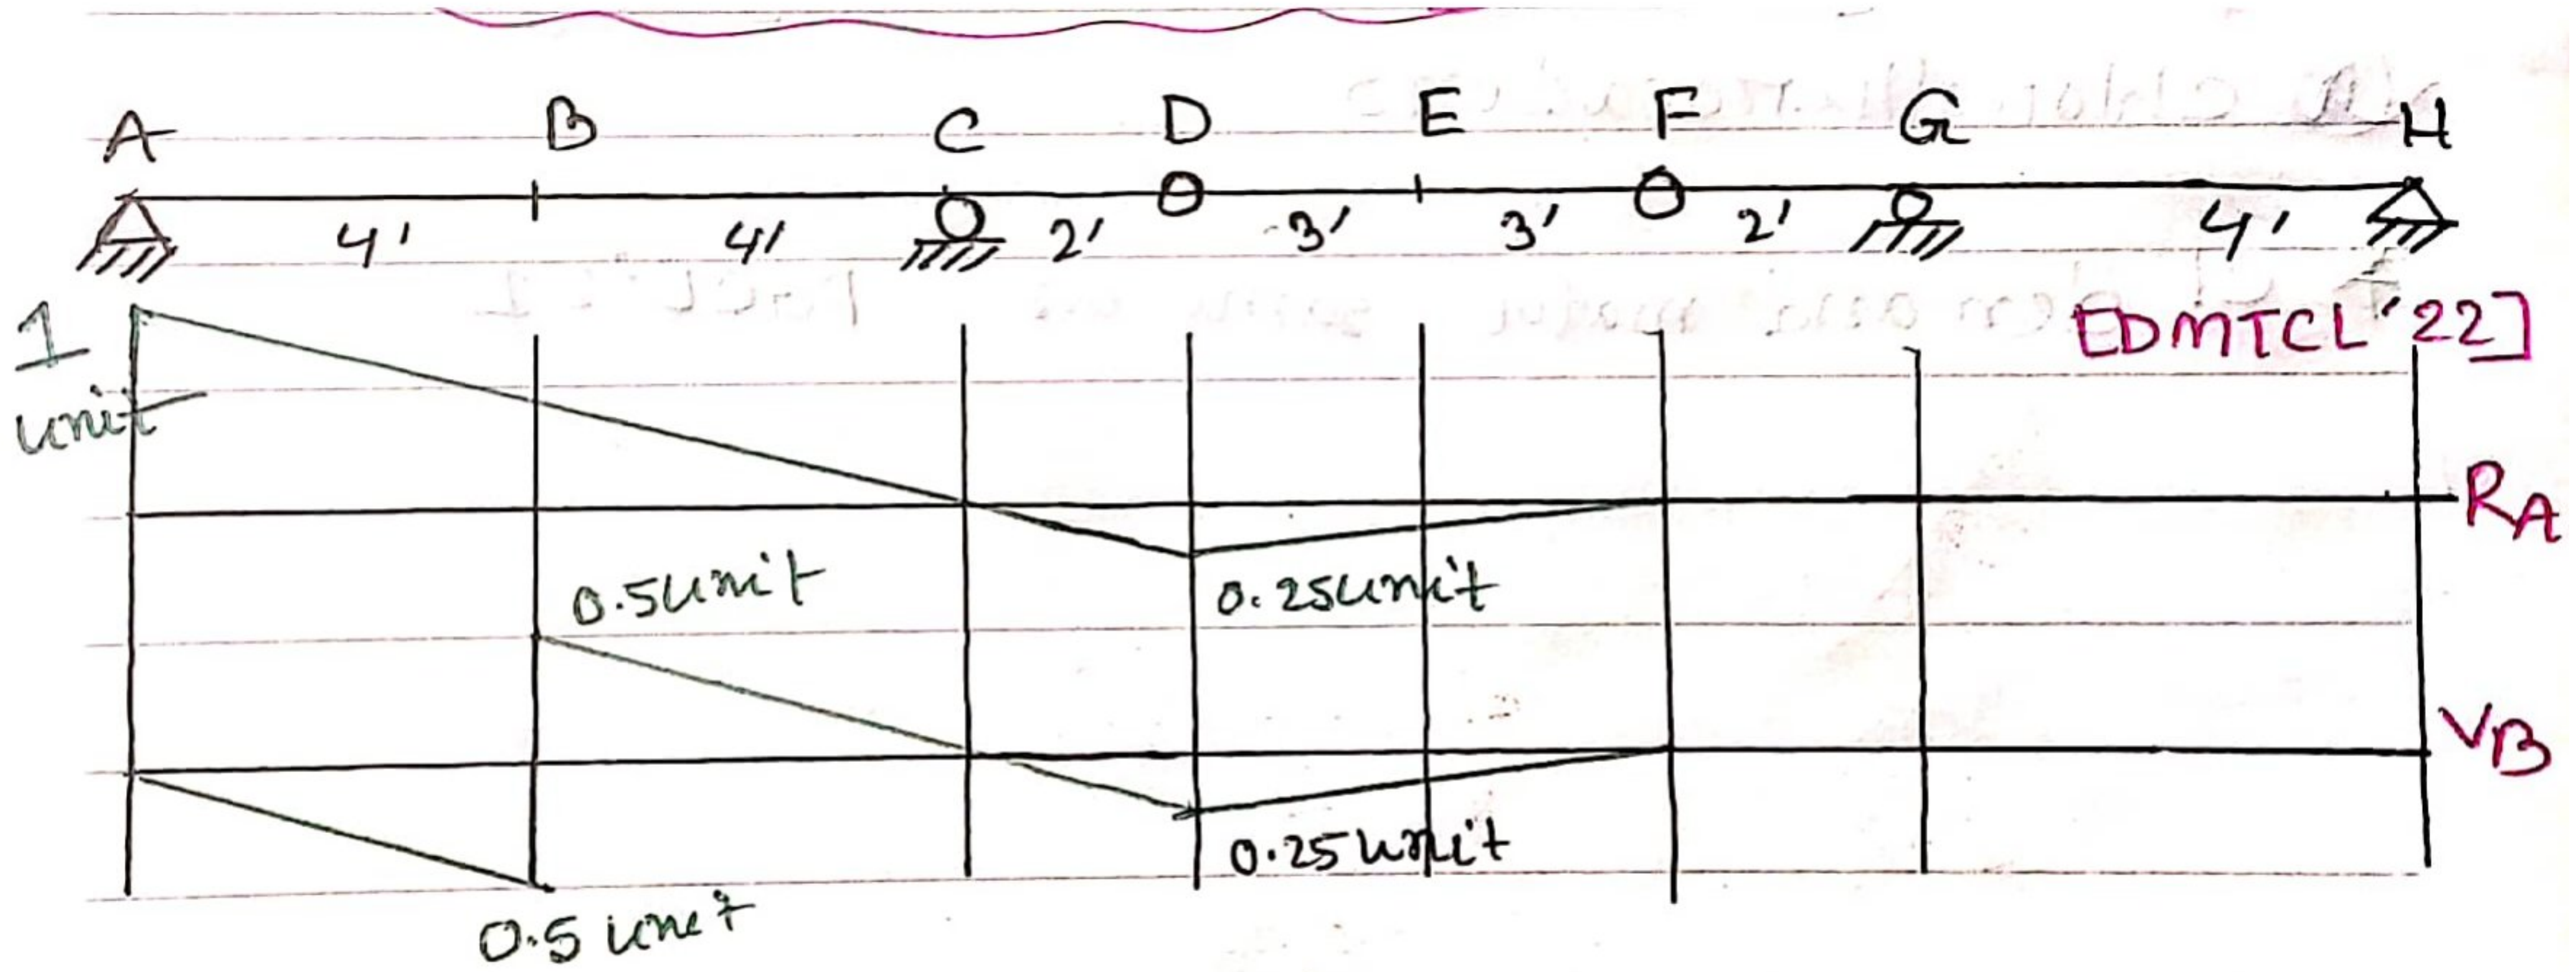 A B C D E F G H
4' 4' 2' 3' 3' 2' 4'
[DMTCL '22]
1
unit
RA
0.5 unit
0.25 unit
VB
0.25 unit
0.5 unit